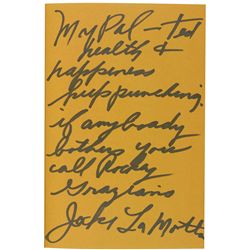 My Pal - Ted
health &
happiness
keep punching.
if anyboady
bothers you
call Rocky
Graziano
Jake LaMotta